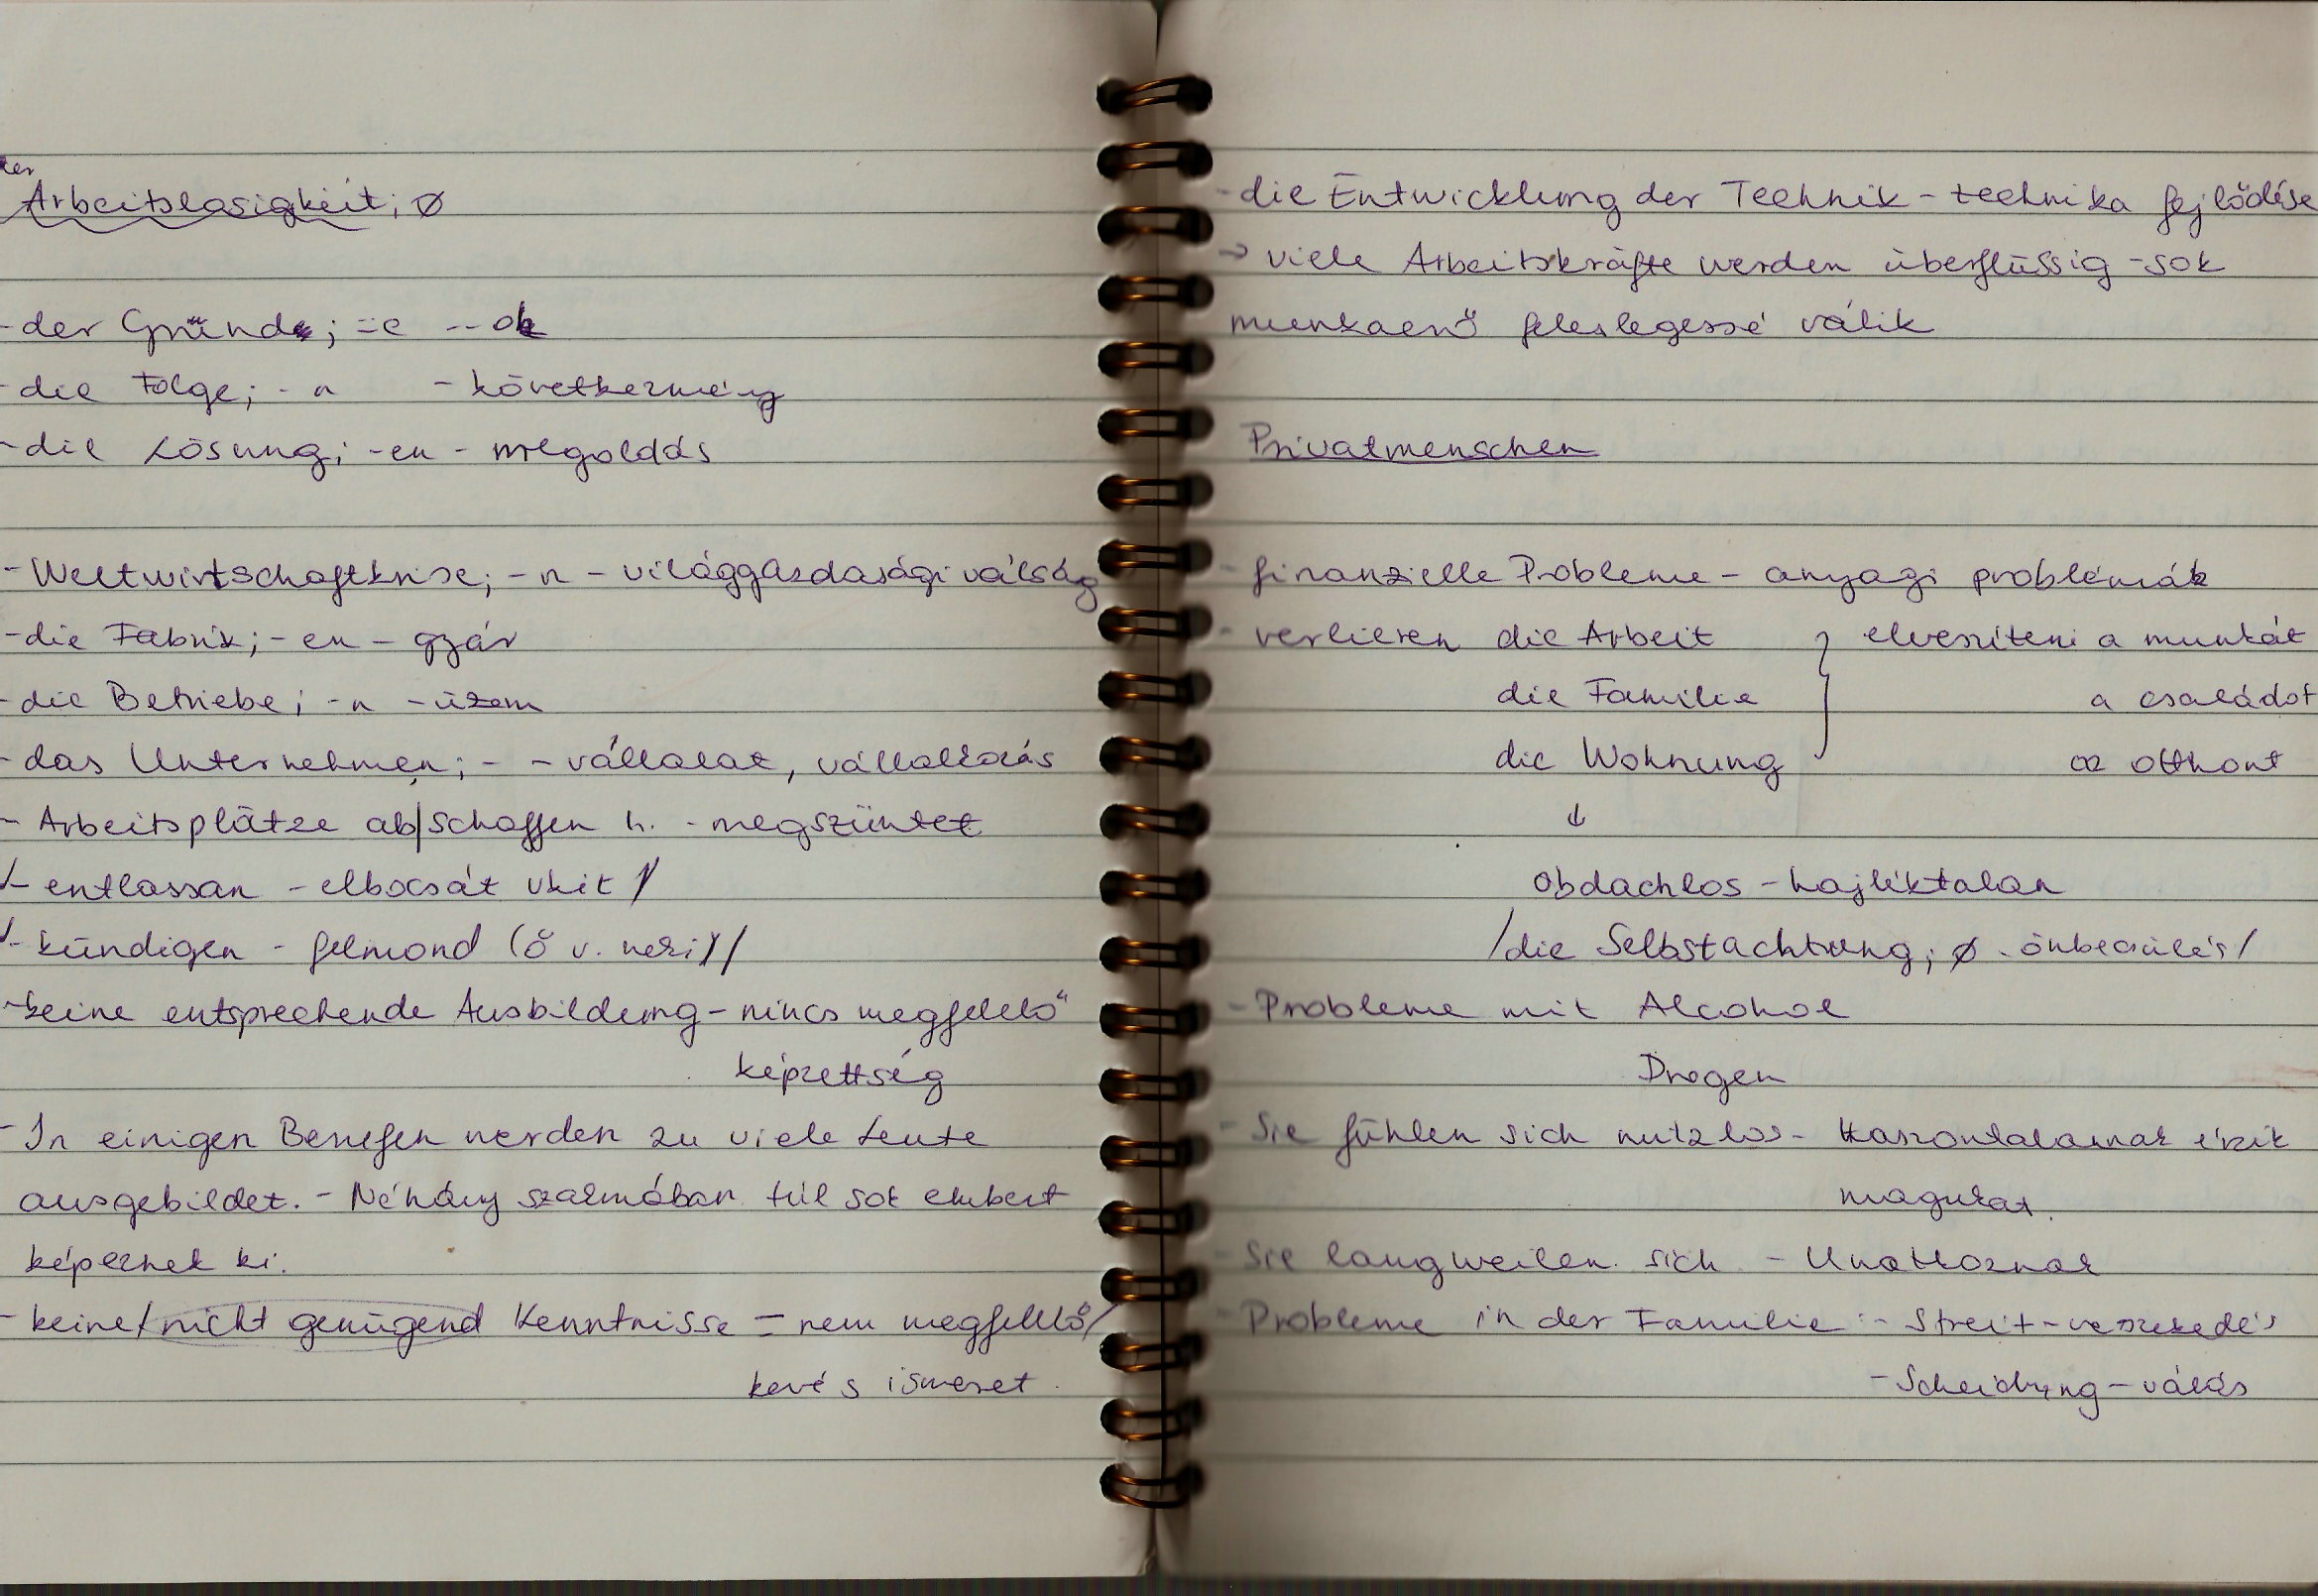 der
Arbeitslosigkeit; ø
- der Gründ; ⸚e -- ok
- die Folge; - n - következmény
- die Lösung; -en - megoldás
- Weltwirtschaftkrise; - n - világgazdasági válság
- die Fabrik; - en - gyár
- die Betriebe; - n - üzem
- das Unternehmen; - - vállalat, vállalkozás
- Arbeitsplätze ab|schaffen h. - megszüntet
/- entlassan - elbocsát vkit /
/- kündigen - felmond (ő v. neki) /
- keine entsprechende Ausbildung - nincs megfelelő
képzettség
- In einigen Berufen werden zu viele Leute
ausgebildet. - Néhány szakmában túl sok embert
képeznek ki.
- keine / nicht genügend Kenntnisse = nem megfelelő/
kevés ismeret
- die Entwicklung der Technik - technika fejlődése
→ viele Arbeitskräfte werden überflüssig - sok
munkaerő feleslegessé válik
Privatmenschen
- finanzielle Probleme - anyagi problémák
- verlieren die Arbeit } elveszíteni a munkát
die Familie a családot
die Wohnung az otthont
↓
obdachlos - hajléktalan
/die Selbstachtung; ø - önbecsülés/
- Probleme mit Alcohol
Drogen
- Sie fühlen sich nutzlos - Haszontalannak érzik
magukat.
- Sie langweilen sich - Unatkoznak
- Probleme in der Familie: - Streit - veszekedés
- Scheidung - válás